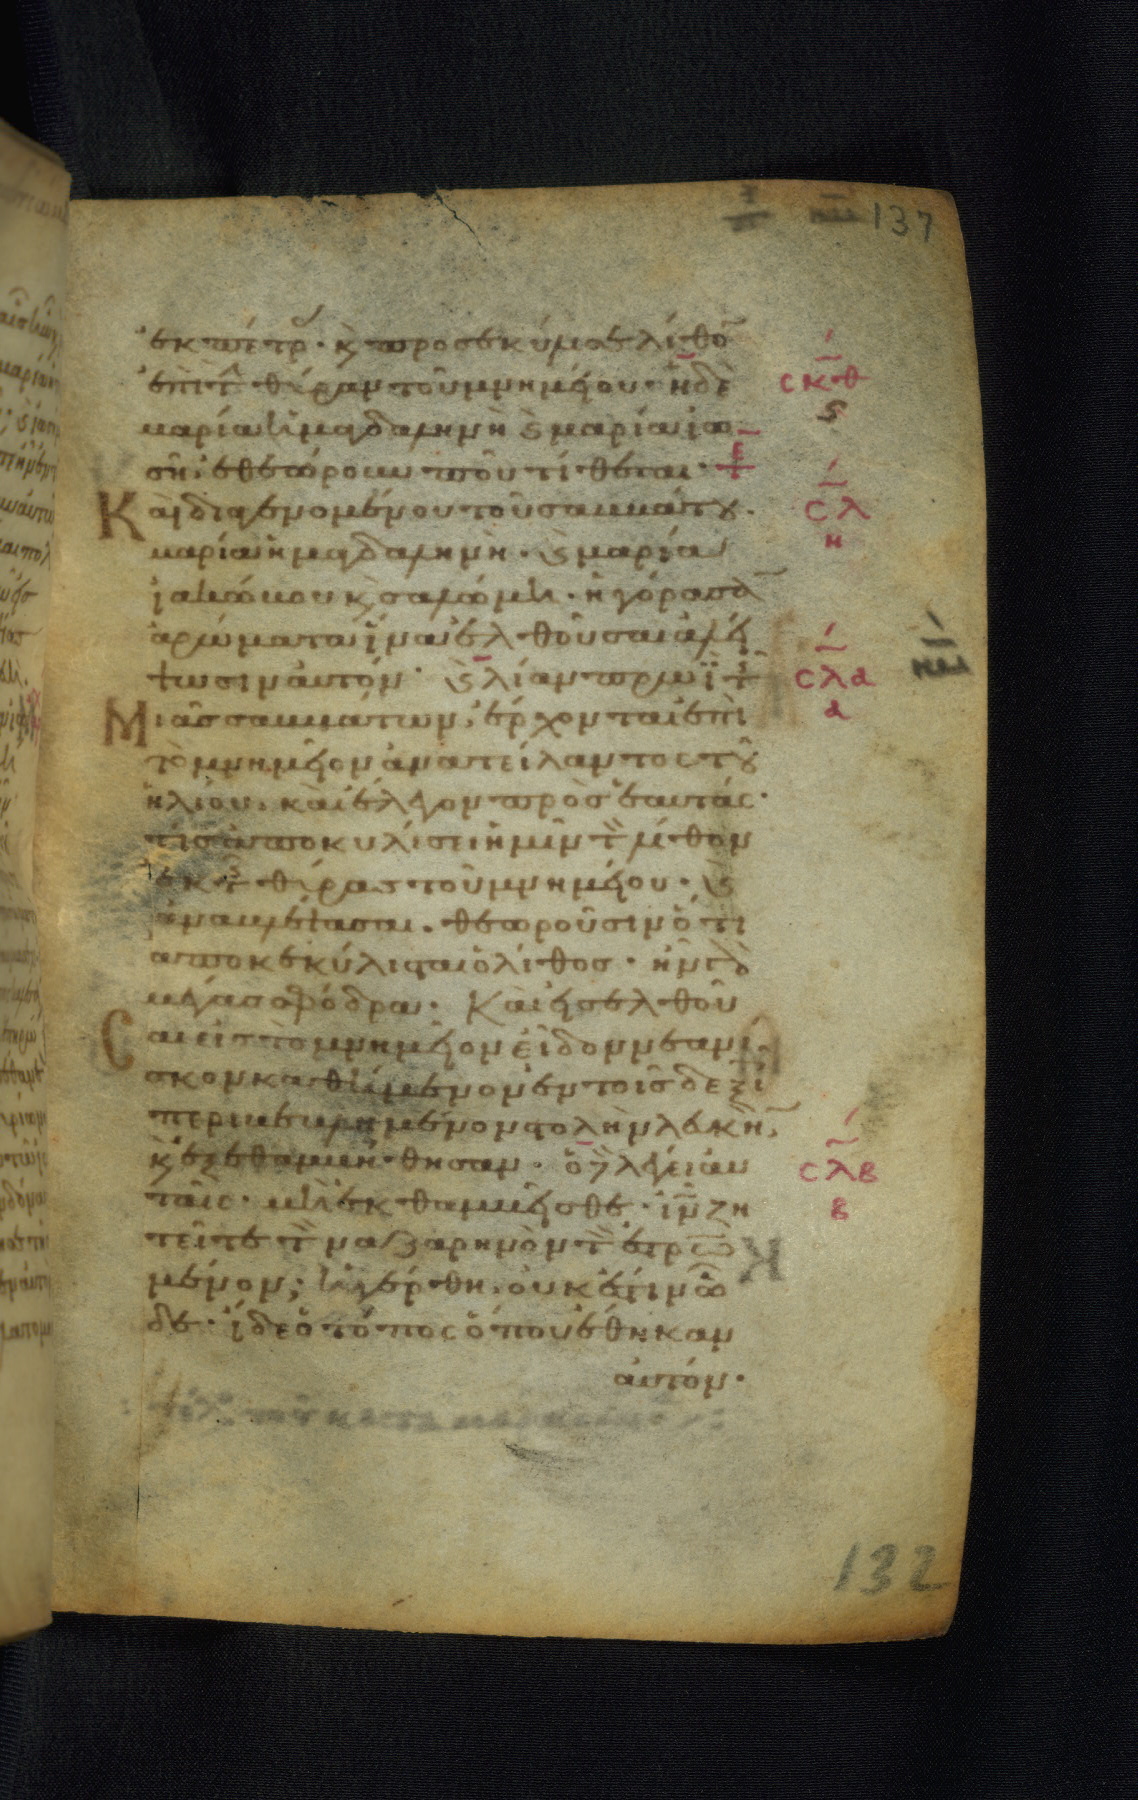 137
ἐκ πέτρ · κ̀ προσεκύλισε λίθο
ἐπὶ τ θύραν τοῦ μνημείου · ἡ δὲ
σκθ
ϛ
μαρία ἡ μαγδαληνὴ ϛ̀ μαρία ἰω
σῆ, ἐθεώρουν ποῦ τίθεται ·
Καὶ διαγενομένου τοῦ σαββάτου.
σλ
η
μαρία ἡ μαγδαληνὴ · ϛ̀ μαρία
ἰακώβου κ̀ σαλώμη · ἠγόρασα
ἀρώματα ἵνα ἐλθοῦσαι ἀλεί
ψωσιν αὐτόν · ϛ̀ λίαν πρωῒ τ
σλα
α
Μιᾶς σαββάτων, ἔρχονται ἐπὶ
τὸ μνημεῖον ἀνατείλαντος τοῦ
ἡλίου. καὶ ἔλεγον πρὸς ἑαυτάς ·
τίς ἀποκυλίσει ἡμῖν τ λίθον
ἐκ τ θύρας τοῦ μνημείου · ϛ̀
ἀναβλέψασαι. θεωροῦσιν ὅτι
ἀποκεκύλισται ὁ λίθος · ἦν γὰρ
μέγας σφόδρα · Καὶ εἰσελθοῦ
σαι εἰς τὸ μνημεῖον εἶδον νεανί
σκον καθήμενον ἐν τοῖς δεξι
περιβεβλημένον στολὴν λευκήν,
κ̀ ἐξεθαμβήθησαν · ὁ δὲ λέγει αὐ
σλβ
β
ταῖς · μὴ ἐκθαμβεῖσθε · ἰν ζη
τεῖτε τ ναζαρηνὸν τ ἐστρω
μένον; ἠγέρθη. οὐκ ἔστιν ὧ
δε · ἴδε ὁ τόπος ὅπου ἔθηκαν
αὐτόν ·
132